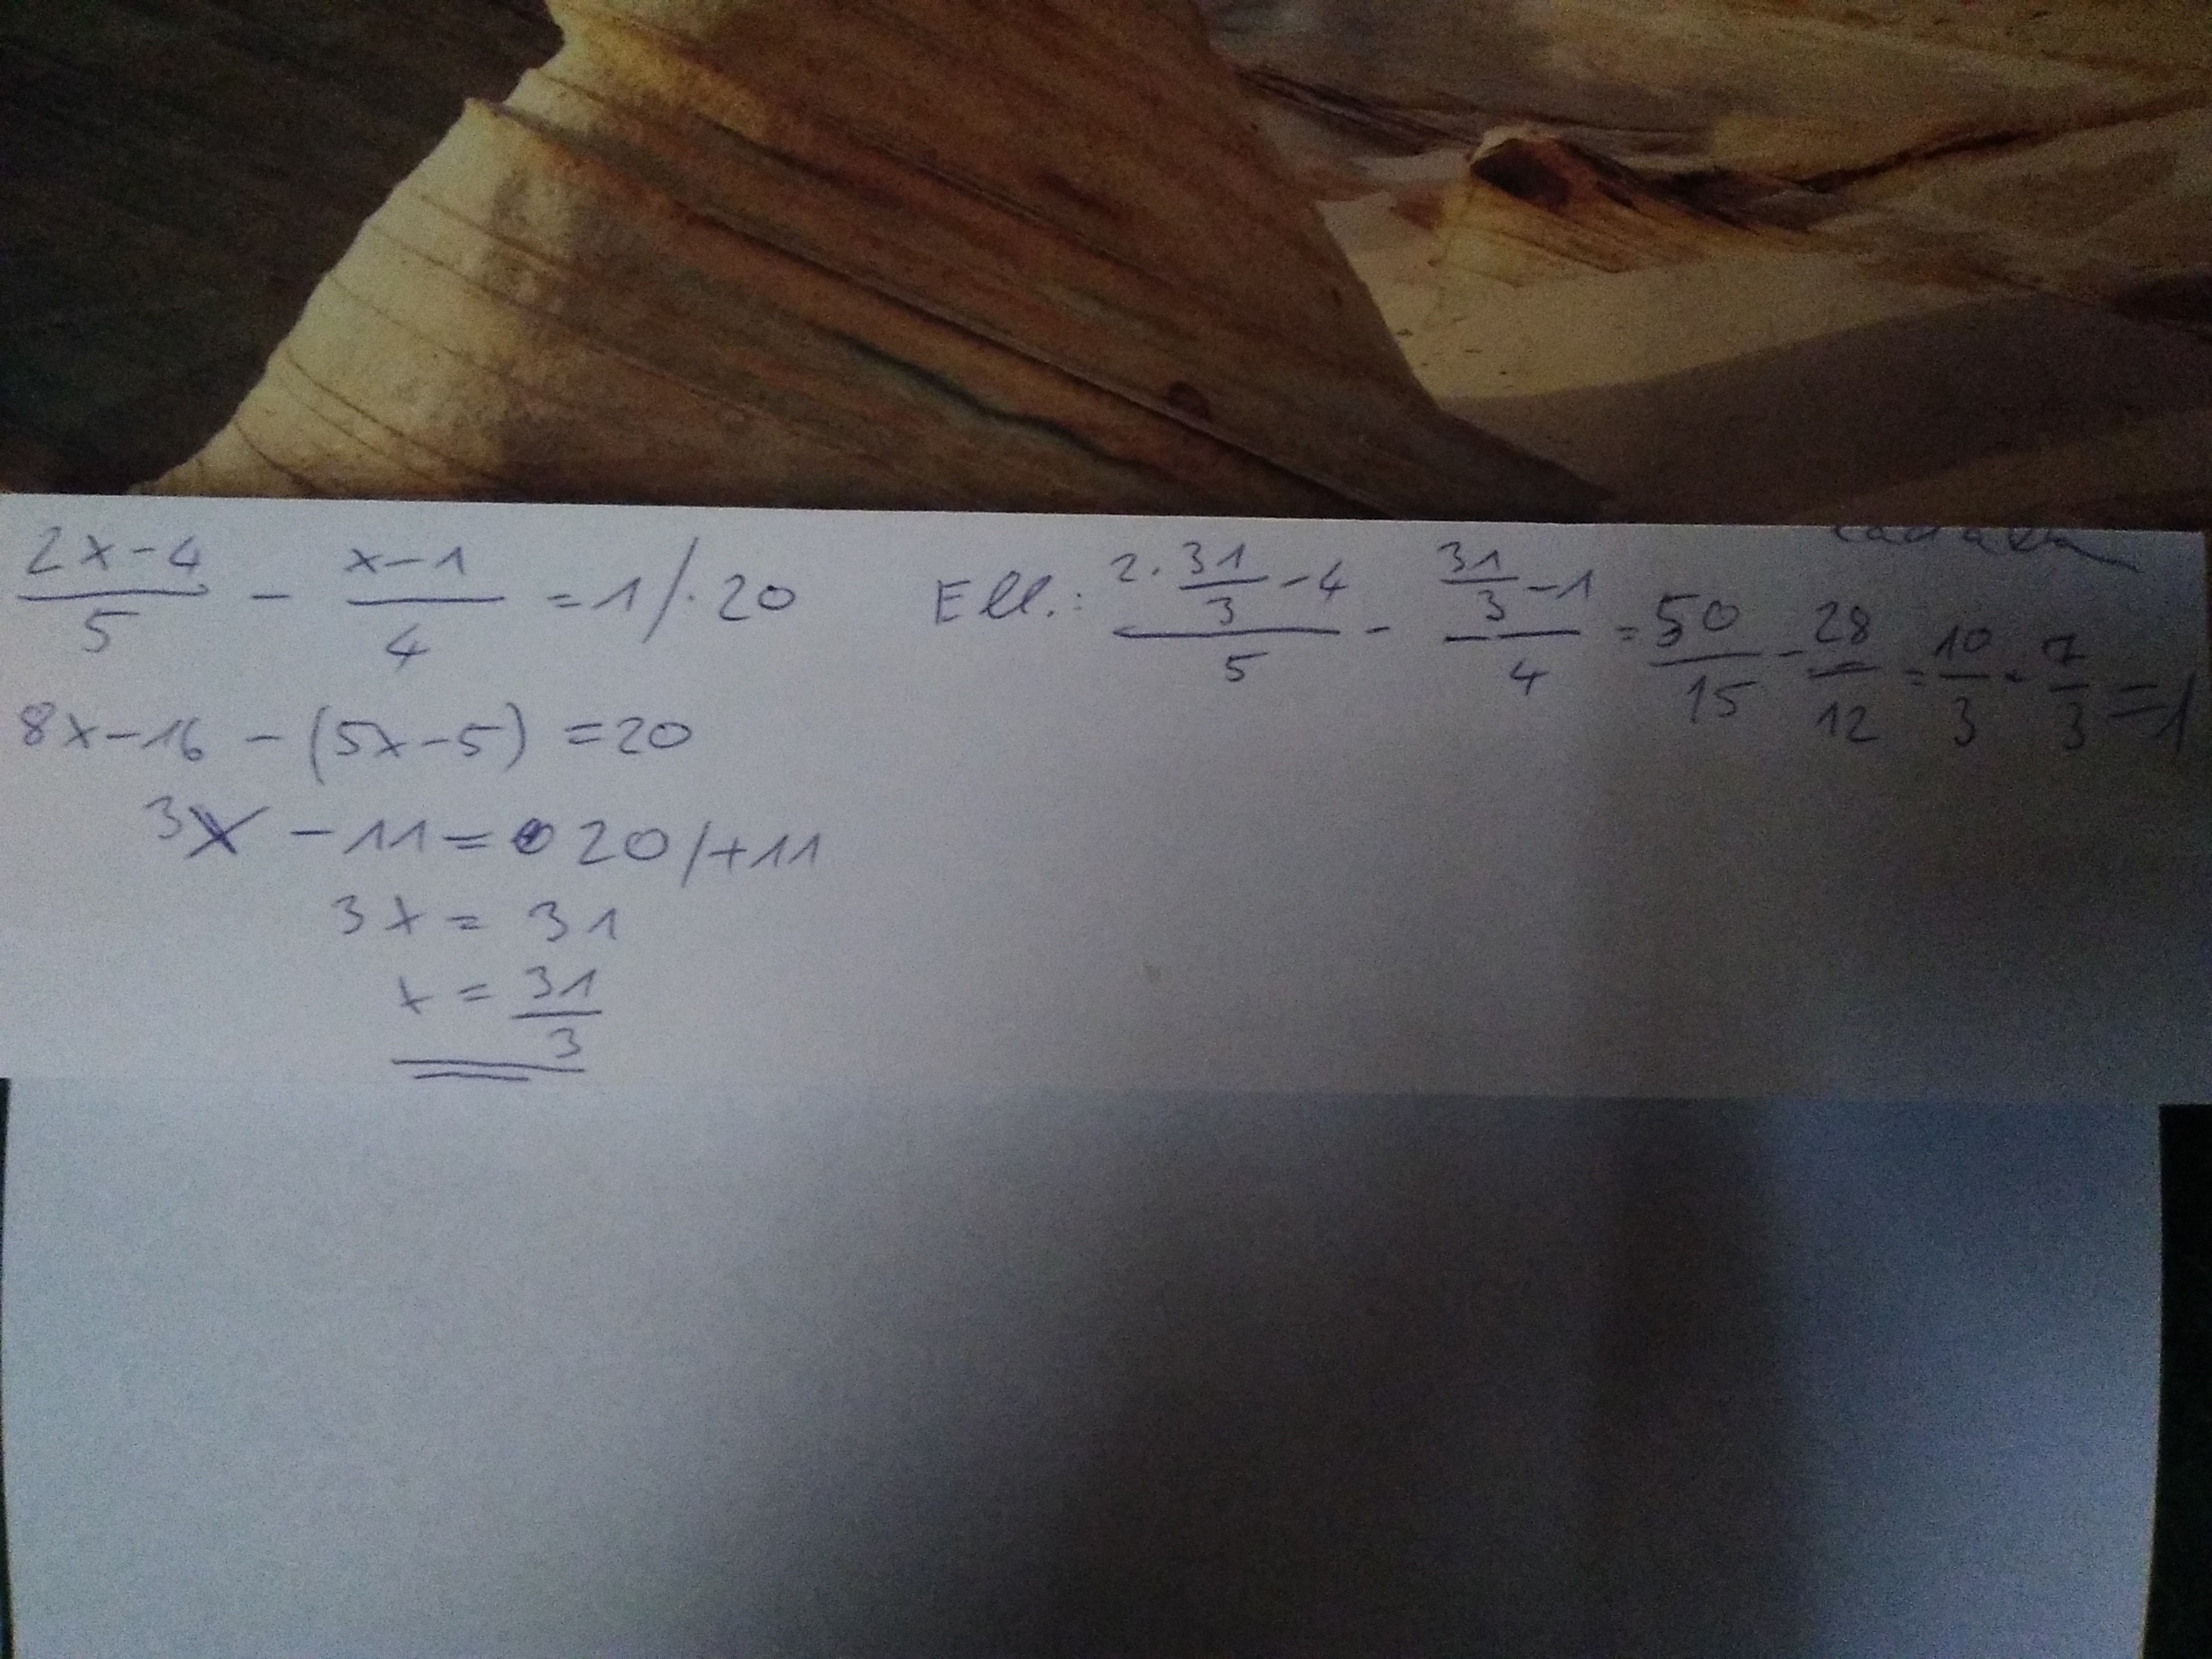 (2x-4)/5 - (x-1)/4 = 1 /·20
8x-16 - (5x-5) = 20
3x - 11 = 20 /+11
3x = 31
x = 31/3
Ell.: (2·31/3-4)/5 - (31/3-1)/4 = 50/15 - 28/12 = 10/3 - 7/3 = 1